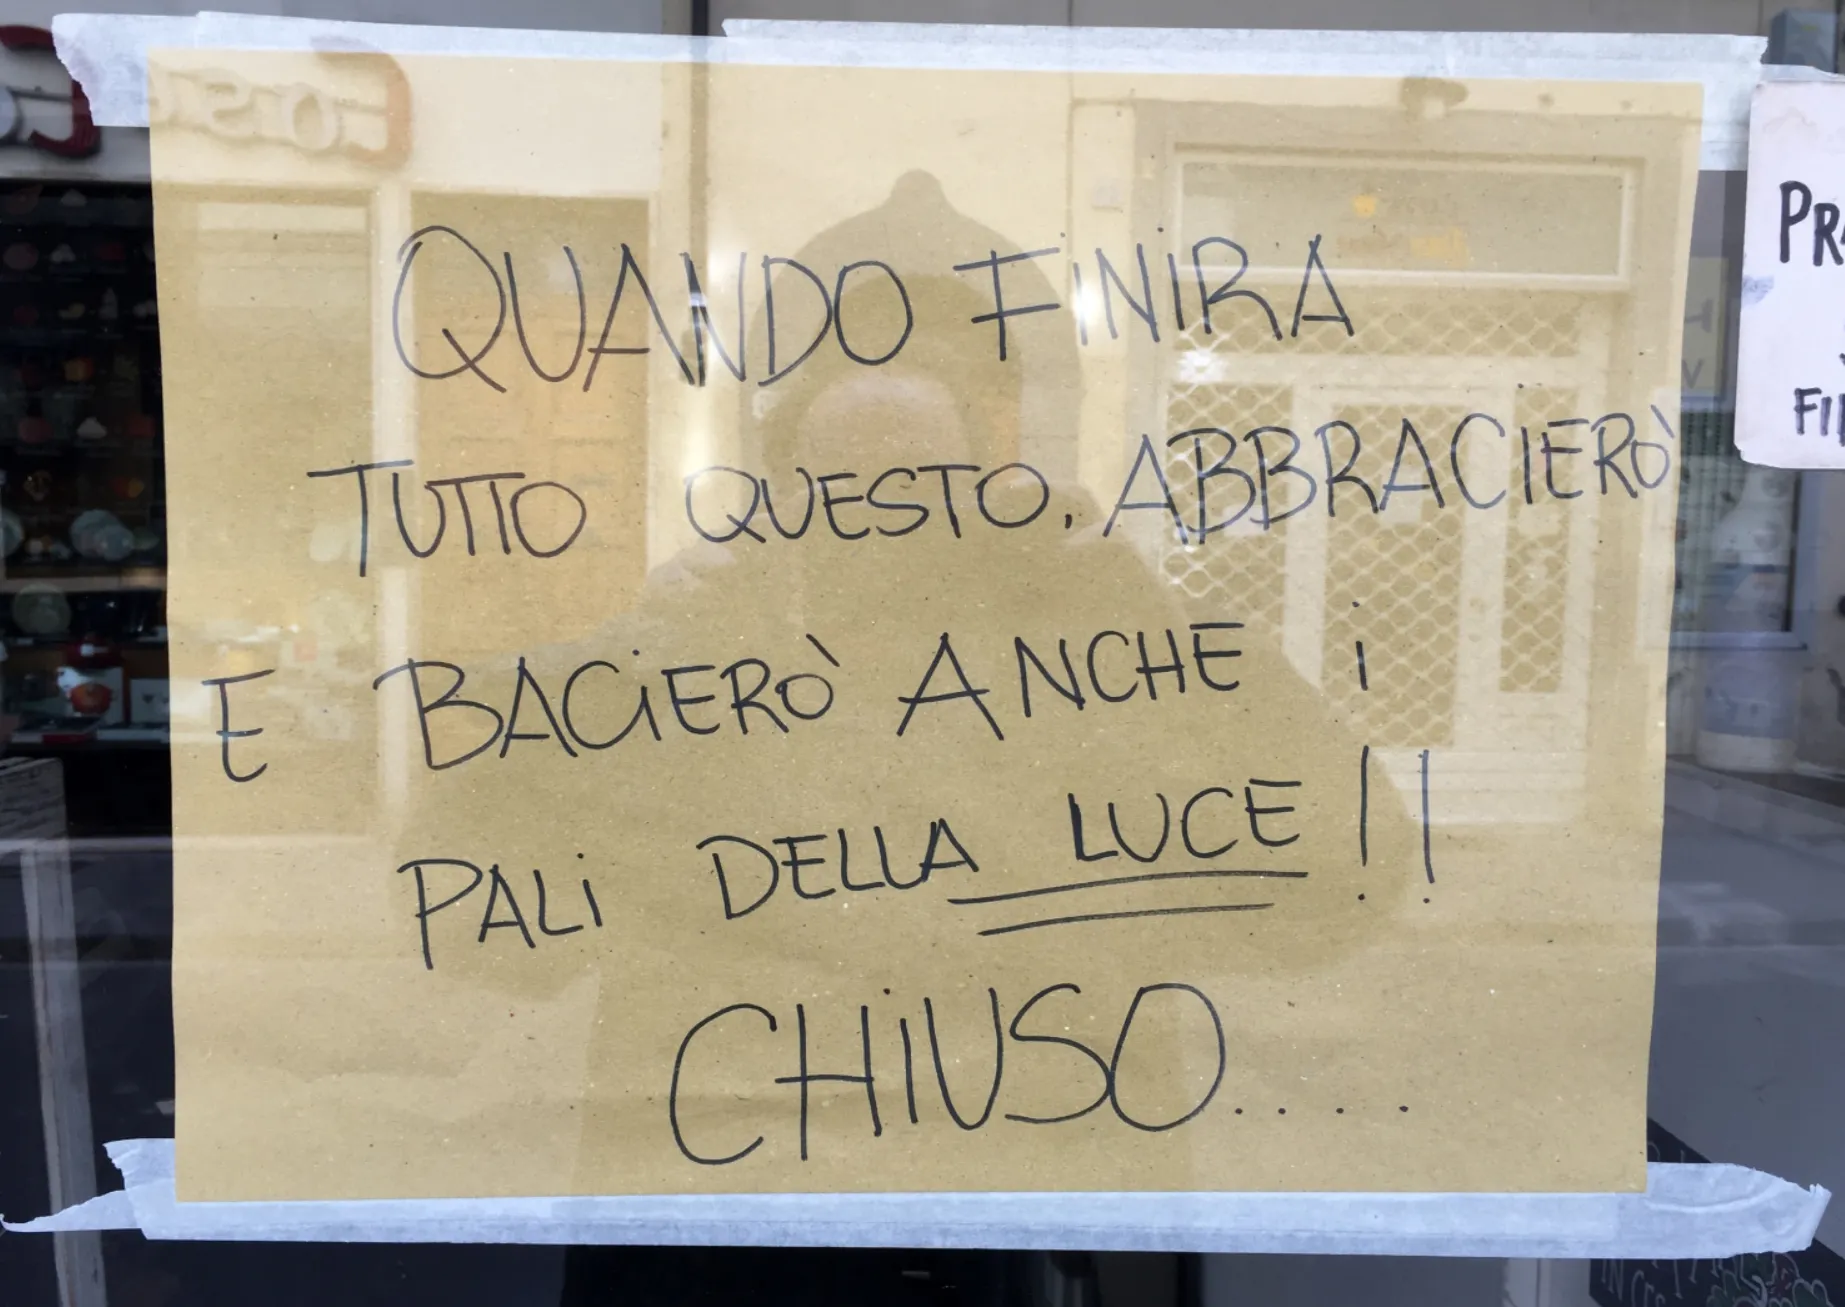 QUANDO FINIRA
TUTTO QUESTO, ABBRACIERÒ
E BACIERÒ ANCHE i
PALI DELLA LUCE!!
CHIUSO.....
PR
FI